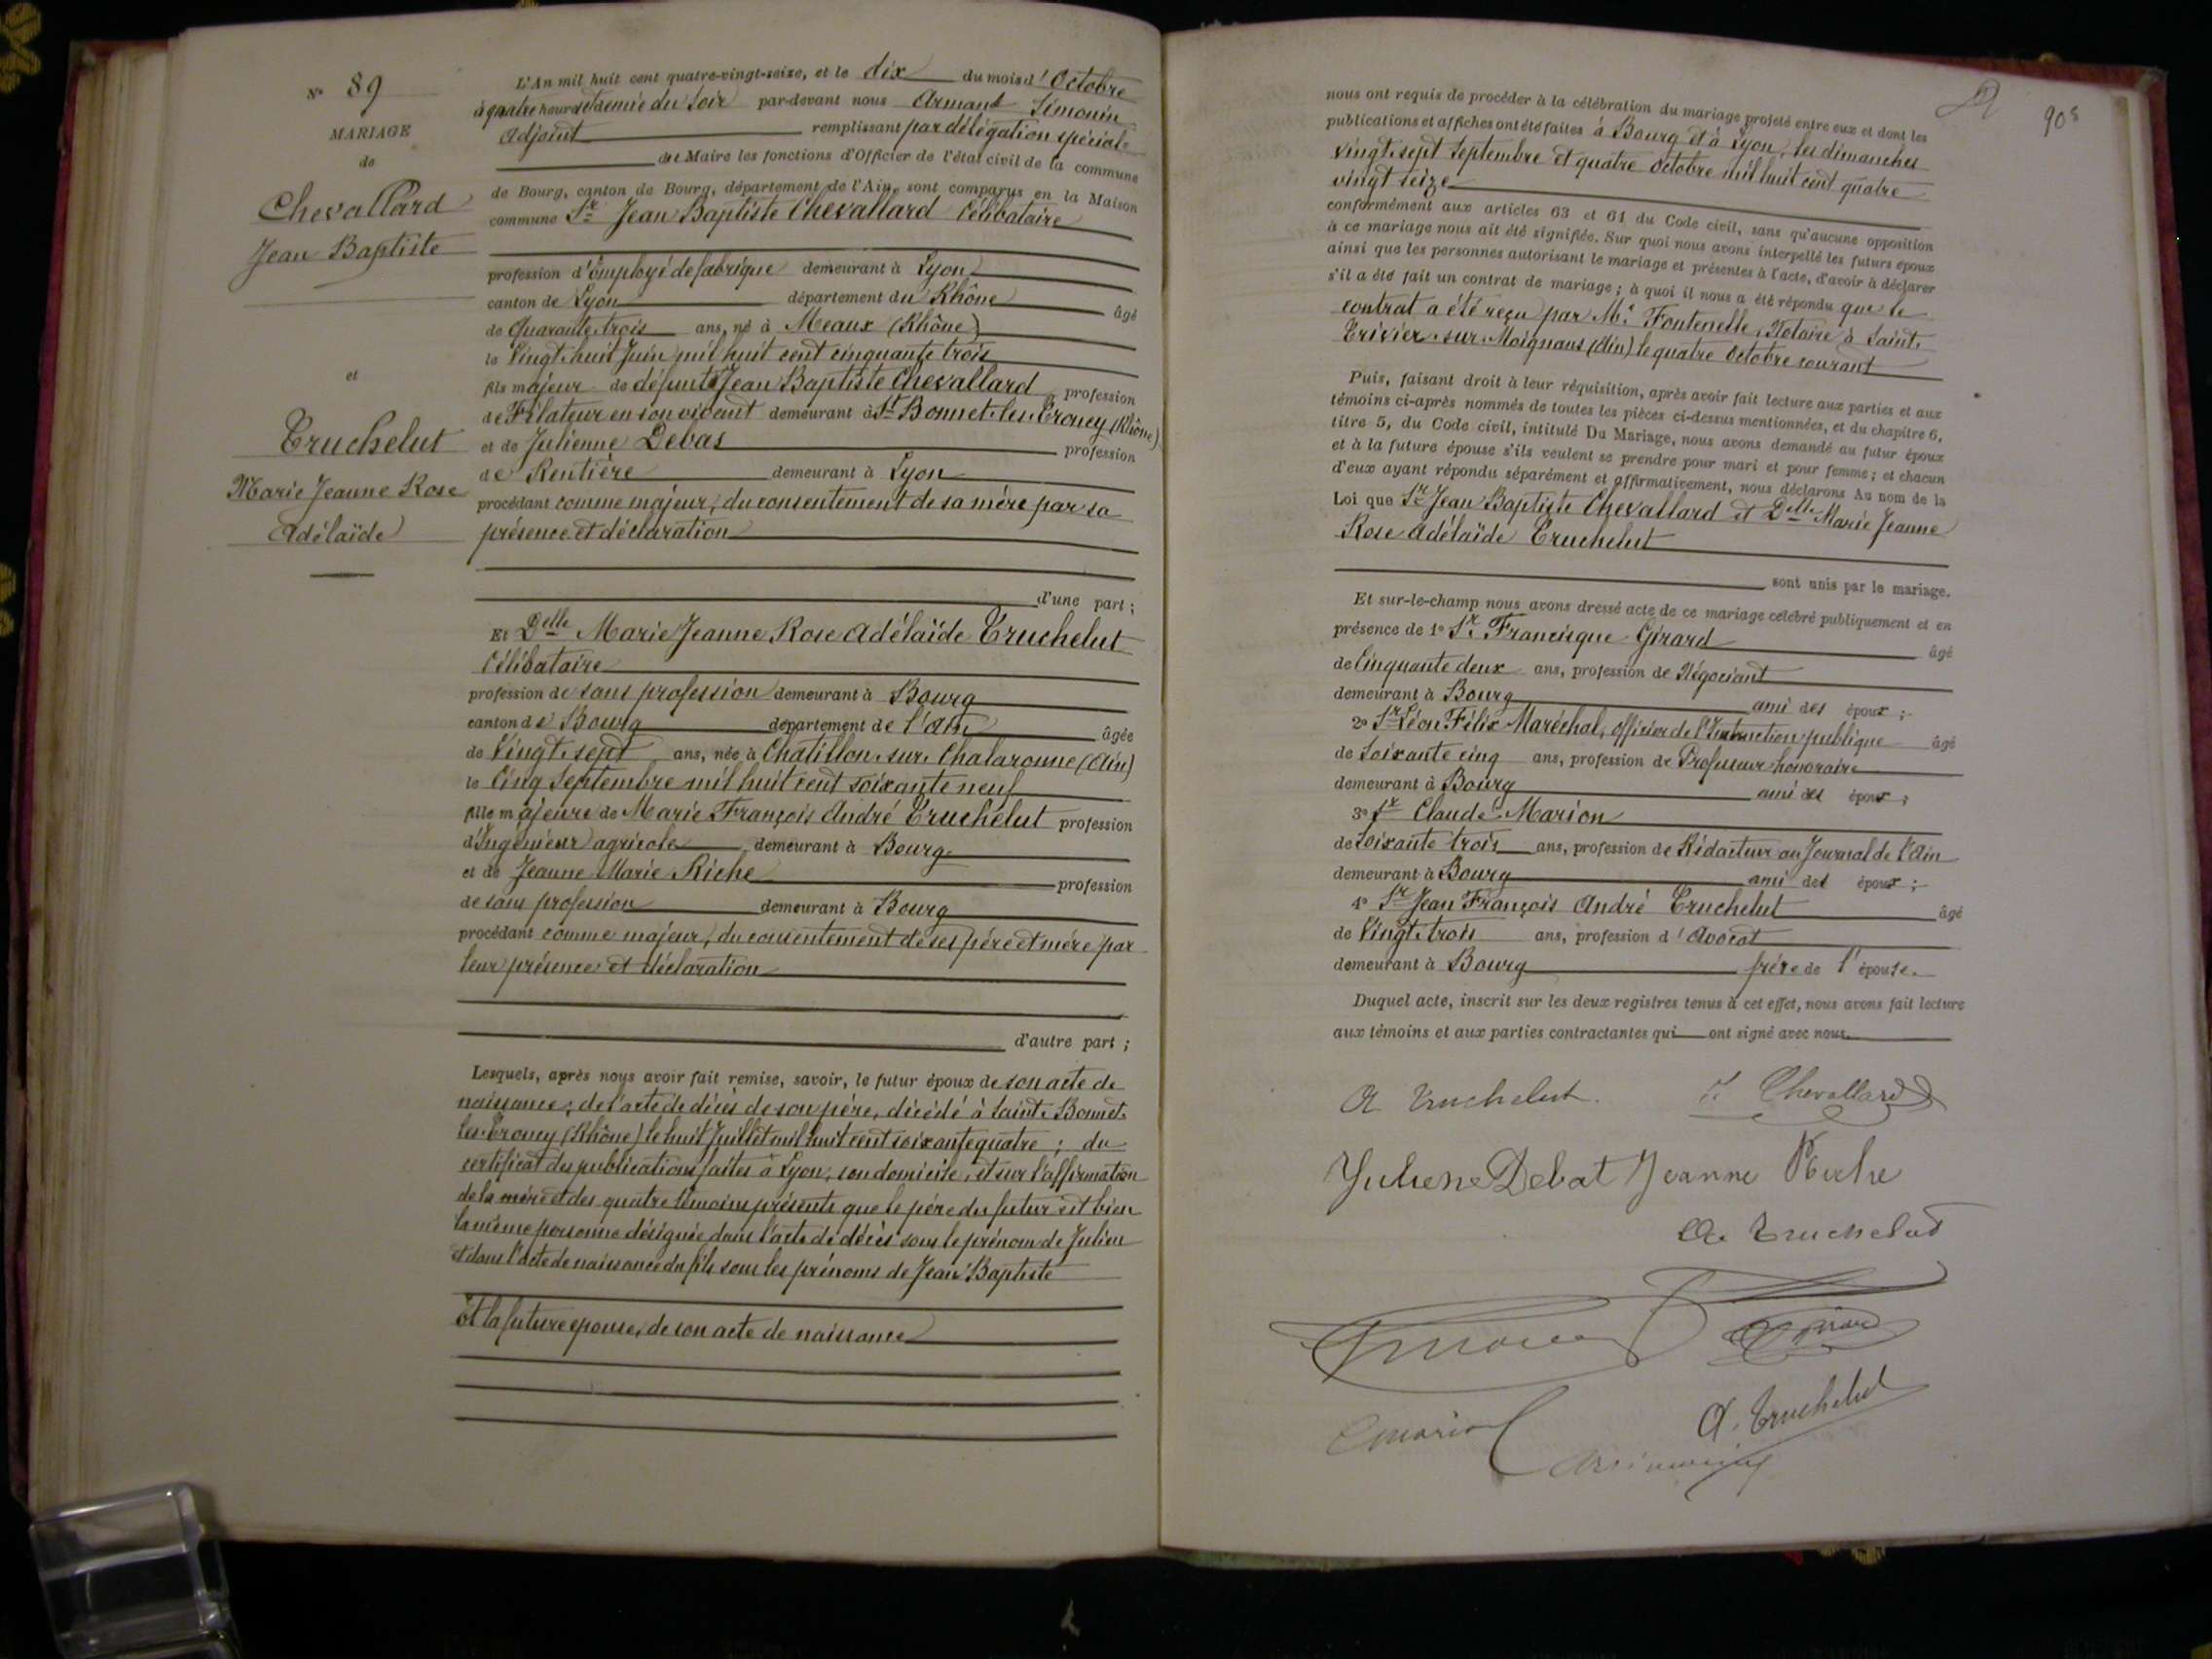 N° 89
MARIAGE
de
Chevallard
Jean Baptiste
et
Truchelut
Marie Jeanne Rose
Adélaïde
L'An mil huit cent quatre-vingt-seize, et le dix du mois d'Octobre
à quatre heures et demie du soir par-devant nous Armand Simonin
Adjoint remplissant par délégation spéciale
du Maire les fonctions d'Officier de l'état civil de la commune
de Bourg, canton de Bourg, département de l'Ain, sont comparus en la Maison
commune Sr Jean Baptiste Chevallard Célibataire
profession d'Employé de fabrique demeurant à Lyon
canton de Lyon département du Rhône âgé
de Quarante trois ans, né à Meaux (Rhône)
le Vingt huit Juin mil huit cent cinquante trois
fils majeur de défunt Jean Baptiste Chevallard profession
de Filateur en son vivant demeurant à St Bonnet-les-Troncy (Rhône)
et de Julienne Debas profession
de Rentière demeurant à Lyon
procédant comme majeur, du consentement de sa mère par sa
présence et déclaration
d'une part ;
Et Delle Marie Jeanne Rose Adélaïde Truchelut
Célibataire
profession de sans profession demeurant à Bourg
canton de Bourg département de l'Ain âgée
de Vingt-sept ans, née à Chatillon-sur-Chalaronne (Ain)
le Cinq Septembre mil huit cent soixante neuf
fille majeure de Marie François André Truchelut profession
d'Ingénieur agricole demeurant à Bourg
et de Jeanne Marie Riche profession
de sans profession demeurant à Bourg
procédant comme majeur, du consentement de ses père et mère par
leur présence et déclaration
d'autre part ;
Lesquels, après nous avoir fait remise, savoir, le futur époux de son acte de
naissance ; de l'acte de décès de son père, décédé à Saint-Bonnet-
les-Troncy (Rhône) le huit Juillet mil huit cent soixante quatre ; du
certificat des publications faites à Lyon, son domicile, et sur l'affirmation
de la mère et des quatre témoins présents que le père du futur est bien
la même personne désignée dans l'acte de décès sous le prénom de Julien
et dans l'acte de naissance du fils sous les prénoms de Jean Baptiste
Et la future épouse, de son acte de naissance
90e
nous ont requis de procéder à la célébration du mariage projeté entre eux et dont les
publications et affiches ont été faites à Bourg et à Lyon, les dimanches
vingt-sept Septembre et quatre Octobre mil huit cent quatre
vingt seize
conformément aux articles 63 et 64 du Code civil, sans qu'aucune opposition
à ce mariage nous ait été signifiée. Sur quoi nous avons interpellé les futurs époux
ainsi que les personnes autorisant le mariage et présentes à l'acte, d'avoir à déclarer
s'il a été fait un contrat de mariage ; à quoi il nous a été répondu que le
contrat a été reçu par Me Fontenelle, Notaire à Saint-
Trivier-sur-Moignans (Ain) le quatre Octobre courant
Puis, faisant droit à leur réquisition, après avoir fait lecture aux parties et aux
témoins ci-après nommés de toutes les pièces ci-dessus mentionnées, et du chapitre 6,
titre 5, du Code civil, intitulé Du Mariage, nous avons demandé au futur époux
et à la future épouse s'ils veulent se prendre pour mari et pour femme ; et chacun
d'eux ayant répondu séparément et affirmativement, nous déclarons Au nom de la
Loi que Sr Jean Baptiste Chevallard et Delle Marie Jeanne
Rose Adélaïde Truchelut
sont unis par le mariage.
Et sur-le-champ nous avons dressé acte de ce mariage célébré publiquement et en
présence de 1° Sr Francisque Girard âgé
de Cinquante deux ans, profession de Négociant
demeurant à Bourg ami des époux ;
2° Sr Léon Félix Maréchal, officier de l'Instruction publique âgé
de soixante cinq ans, profession de Professeur honoraire
demeurant à Bourg ami des époux ;
3° Sr Claude Marion
de Soixante trois ans, profession de Rédacteur au Journal de l'Ain
demeurant à Bourg ami des époux ;
4° Sr Jean François André Truchelut âgé
de Vingt-trois ans, profession d'Avocat
demeurant à Bourg frère de l'épouse.
Duquel acte, inscrit sur les deux registres tenus à cet effet, nous avons fait lecture
aux témoins et aux parties contractantes qui ont signé avec nous.
A Truchelut. J. Chevallard
Juliene Debat Jeanne Riche
A. Truchelut
Girard
A. Truchelut
C Marion
A Simonin